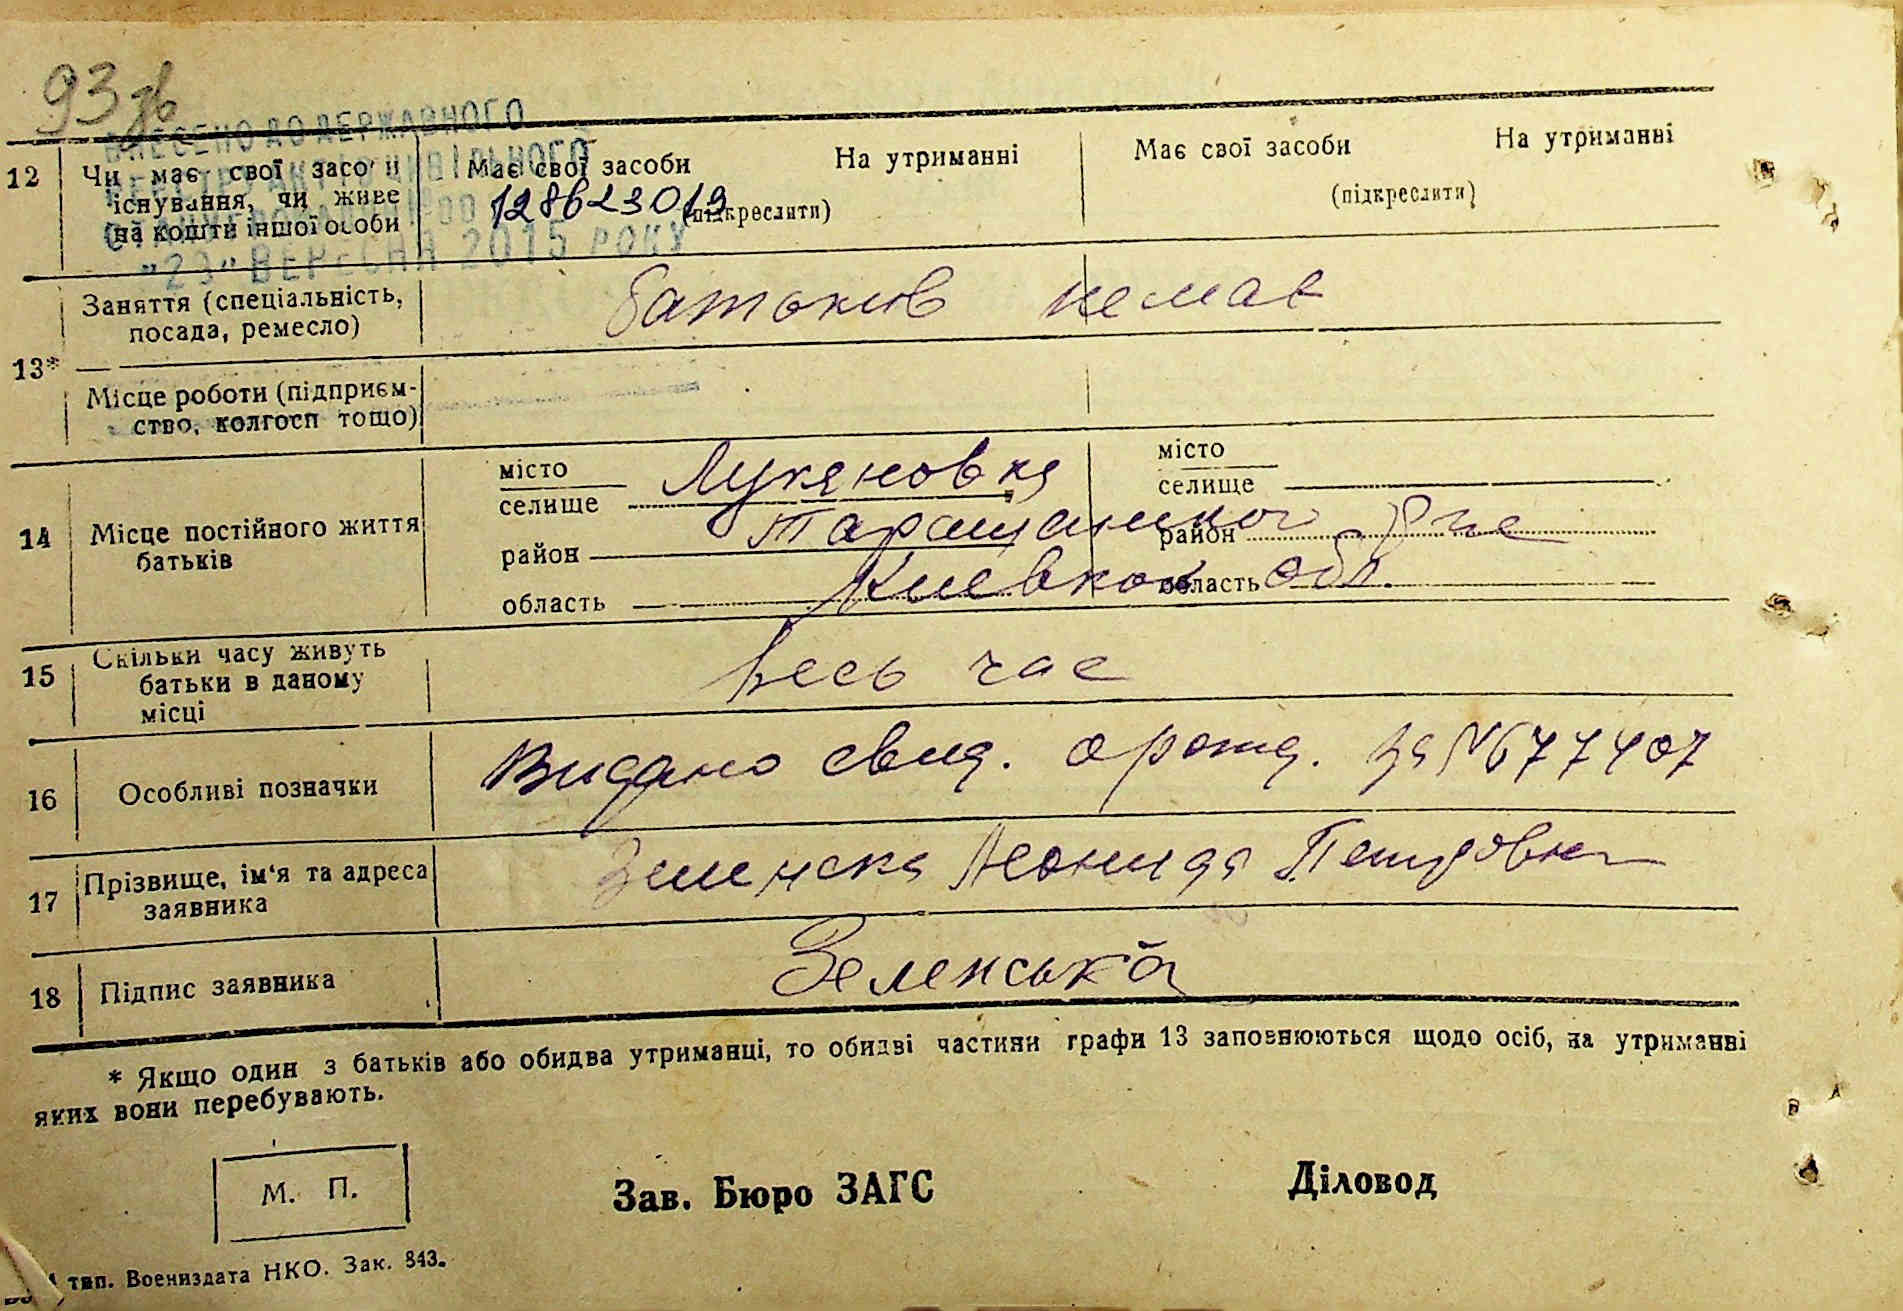 93 зв
ВНЕСЕНО ДО ДЕРЖАВНОГО
"23" ВЕРЕСНЯ 2015 РОКУ
12 Чи має свої засоби Має свої засоби На утриманні Має свої засоби На утриманні
існування, чи живе (підкреслити) (підкреслити)
на кошти іншої особи
Заняття (спеціальність, батьків немає
посада, ремесло)
13*
Місце роботи (підприєм-
ство, колгосп тощо)
місто місто
селище Лукяновка селище
14 Місце постійного життя
батьків
район Таращанського район р-на
область Киевкої область обл.
15 Скільки часу живуть Весь час
батьки в даному
місці
16 Особливі позначки Видано свид. о рожд. за № 677407
17 Прізвище, ім'я та адреса Зеленска Леонида Петровна
заявника
18 Підпис заявника Зеленська
* Якщо один з батьків або обидва утриманці, то обидві частини графи 13 заповнюються щодо осіб, на утриманні
яких вони перебувають.
М. П.
Зав. Бюро ЗАГС Діловод
тип. Воениздата НКО. Зак. 843.